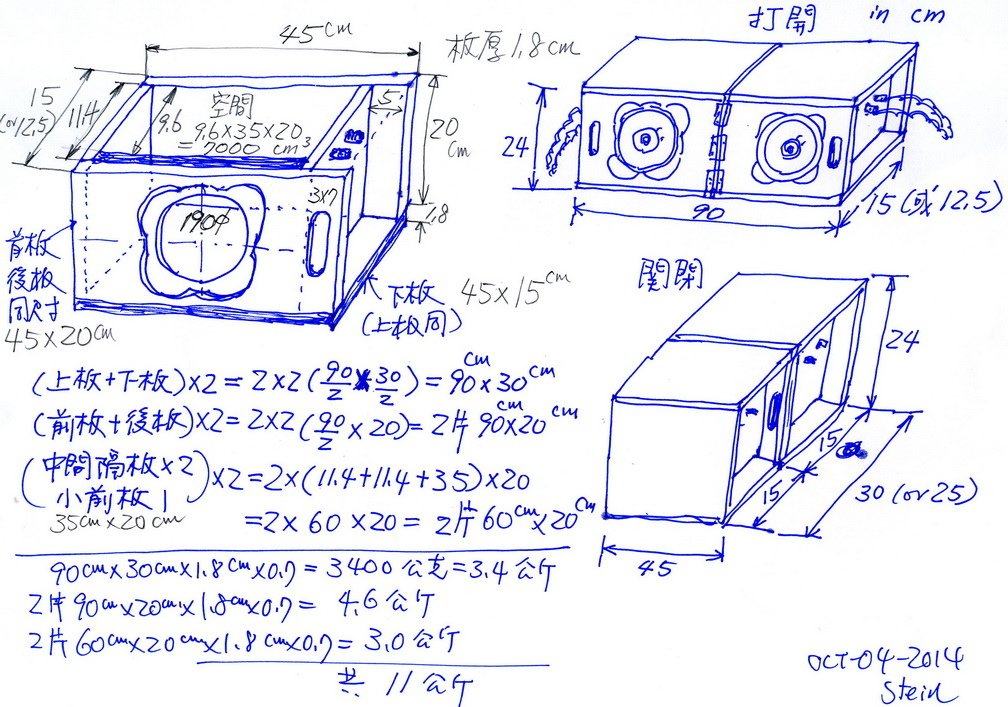 45cm
板厚1.8cm
15
(or12.5)
11.4
9.6
空間
9.6×35×20
=7000 cm³
5
20
cm
1.8
190φ
3×7
前板
後板
同尺寸
45×20cm
下板
(上板同)
45×15cm
打開 in cm
24
90
15(或12.5)
関閉
24
15
15
30(or25)
45
(上板+下板)×2=2×2(90/2×30/2)=90cm×30cm
(前板+後板)×2=2×2(90/2×20)=2片90cm×20cm
(中間隔板×2
小前板1)×2=2×(11.4+11.4+35)×20
35cm×20cm
=2×60×20=2片60cm×20cm
90cm×30cm×1.8cm×0.7=3400公克=3.4公斤
2片90cm×20cm×1.8cm×0.7=4.6公斤
2片60cm×20cm×1.8cm×0.7=3.0公斤
共 11公斤
OCT-04-2014
Stein